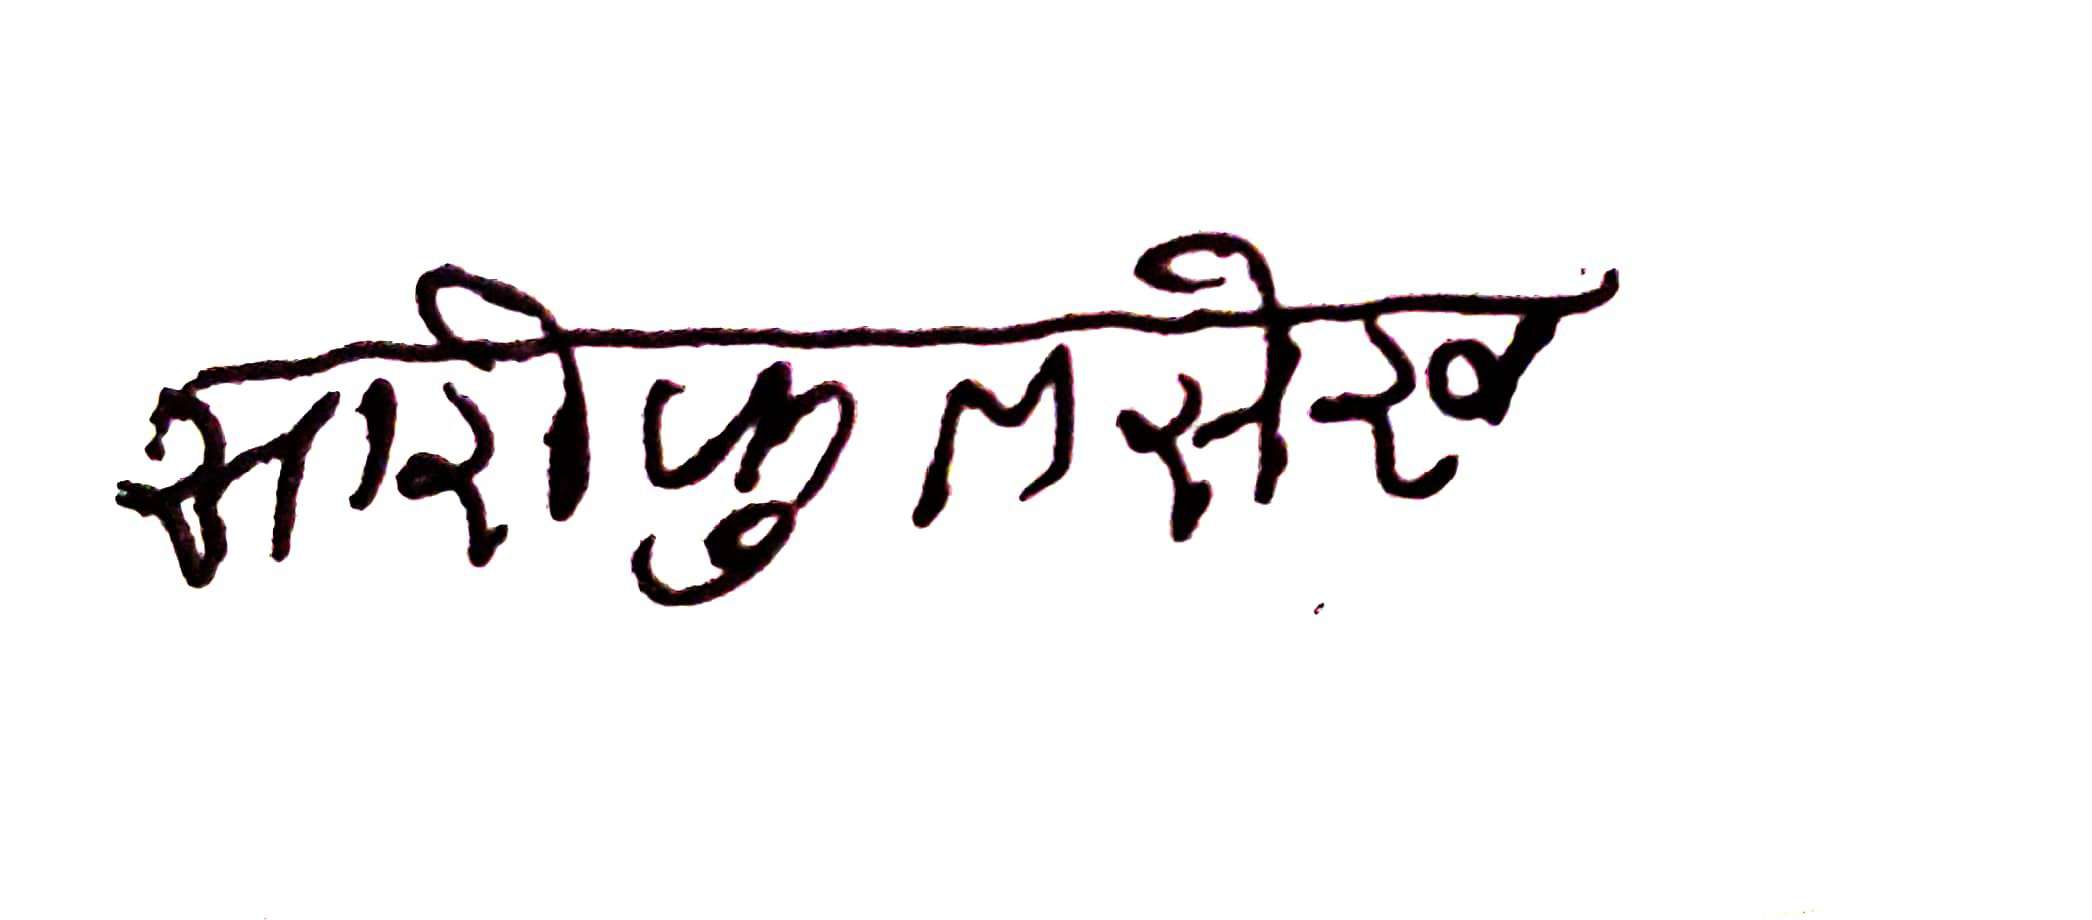 आरीफुल सेख